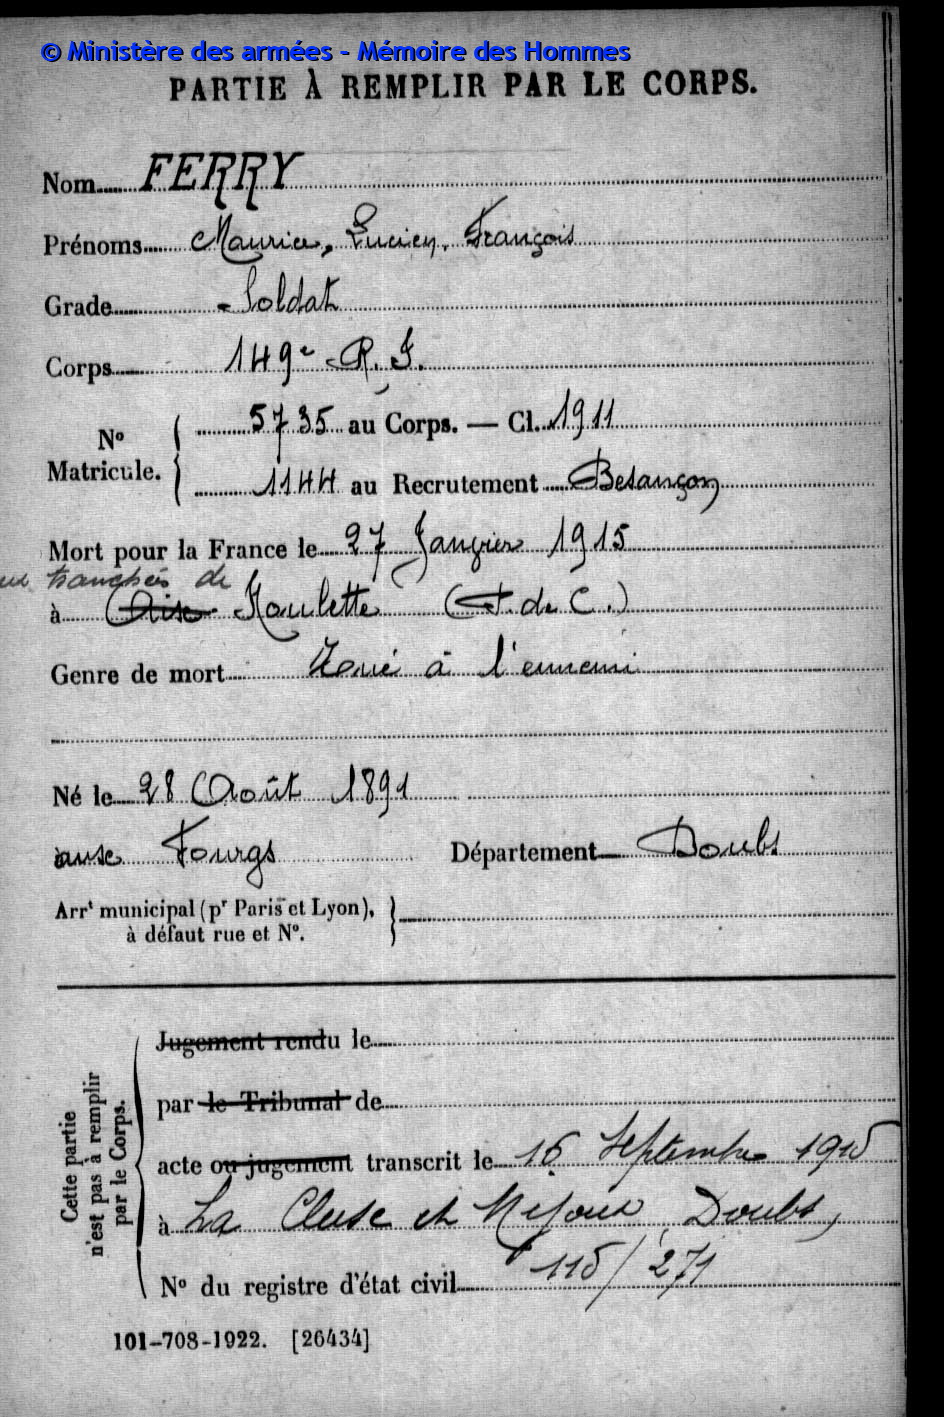 © Ministère des armées - Mémoire des Hommes
PARTIE À REMPLIR PAR LE CORPS.
Nom FERRY
Prénoms Maurice, Lucien, François
Grade Soldat
Corps 149e R. I.
No Matricule. 5735 au Corps. — Cl. 1911
1144 au Recrutement Besançon
Mort pour la France le 27 Janvier 1915
tranchées de
à Noulette (P. de C.)
Genre de mort Tué à l'ennemi
Né le 28 Août 1891
aux Fourgs Département Doubs
Arrt municipal (pr Paris et Lyon),
à défaut rue et No.
Cette partie
n'est pas à remplir
par le Corps.
Jugement rendu le
par le Tribunal de
acte ou jugement transcrit le 16 Septembre 1915
à La Cluse et Mijoux Doubs,
No du registre d'état civil 115/271
101-708-1922. [26434]